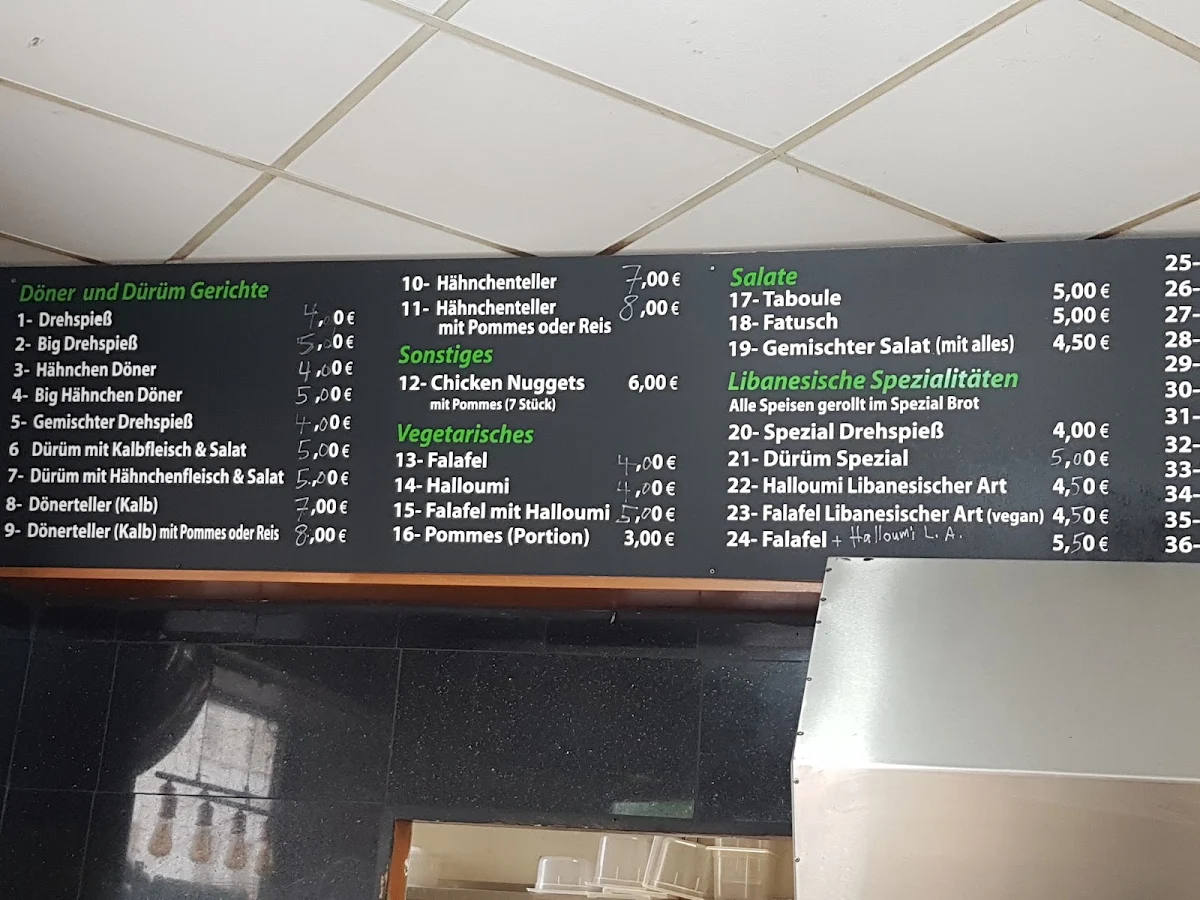 Döner und Dürüm Gerichte
1- Drehspieß 4,00 €
2- Big Drehspieß 5,00 €
3- Hähnchen Döner 4,00 €
4- Big Hähnchen Döner 5,00 €
5- Gemischter Drehspieß 4,00 €
6 Dürüm mit Kalbfleisch & Salat 5,00 €
7- Dürüm mit Hähnchenfleisch & Salat 5,00 €
8- Dönerteller (Kalb) 7,00 €
9- Dönerteller (Kalb) mit Pommes oder Reis 8,00 €
10- Hähnchenteller 7,00 €
11- Hähnchenteller 8,00 €
mit Pommes oder Reis
Sonstiges
12- Chicken Nuggets 6,00 €
mit Pommes (7 Stück)
Vegetarisches
13- Falafel 4,00 €
14- Halloumi 4,00 €
15- Falafel mit Halloumi 5,00 €
16- Pommes (Portion) 3,00 €
Salate
17- Taboule 5,00 €
18- Fatusch 5,00 €
19- Gemischter Salat (mit alles) 4,50 €
Libanesische Spezialitäten
Alle Speisen gerollt im Spezial Brot
20- Spezial Drehspieß 4,00 €
21- Dürüm Spezial 5,00 €
22- Halloumi Libanesischer Art 4,50 €
23- Falafel Libanesischer Art (vegan) 4,50 €
24- Falafel + Halloumi L. A. 5,50 €
25-
26-
27-
28-
29-
30-
31-
32-
33-
34-
35-
36-